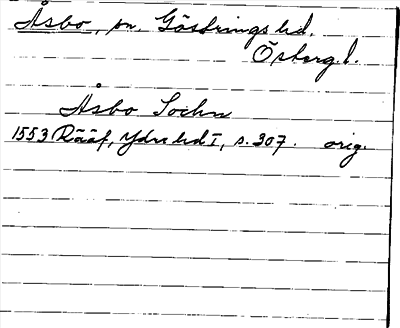 Åsbo, sn, Göstrings hd.
Östergl.
Åsbo Sochn
1553 Rääf, Ydre hd I, s. 307. orig.